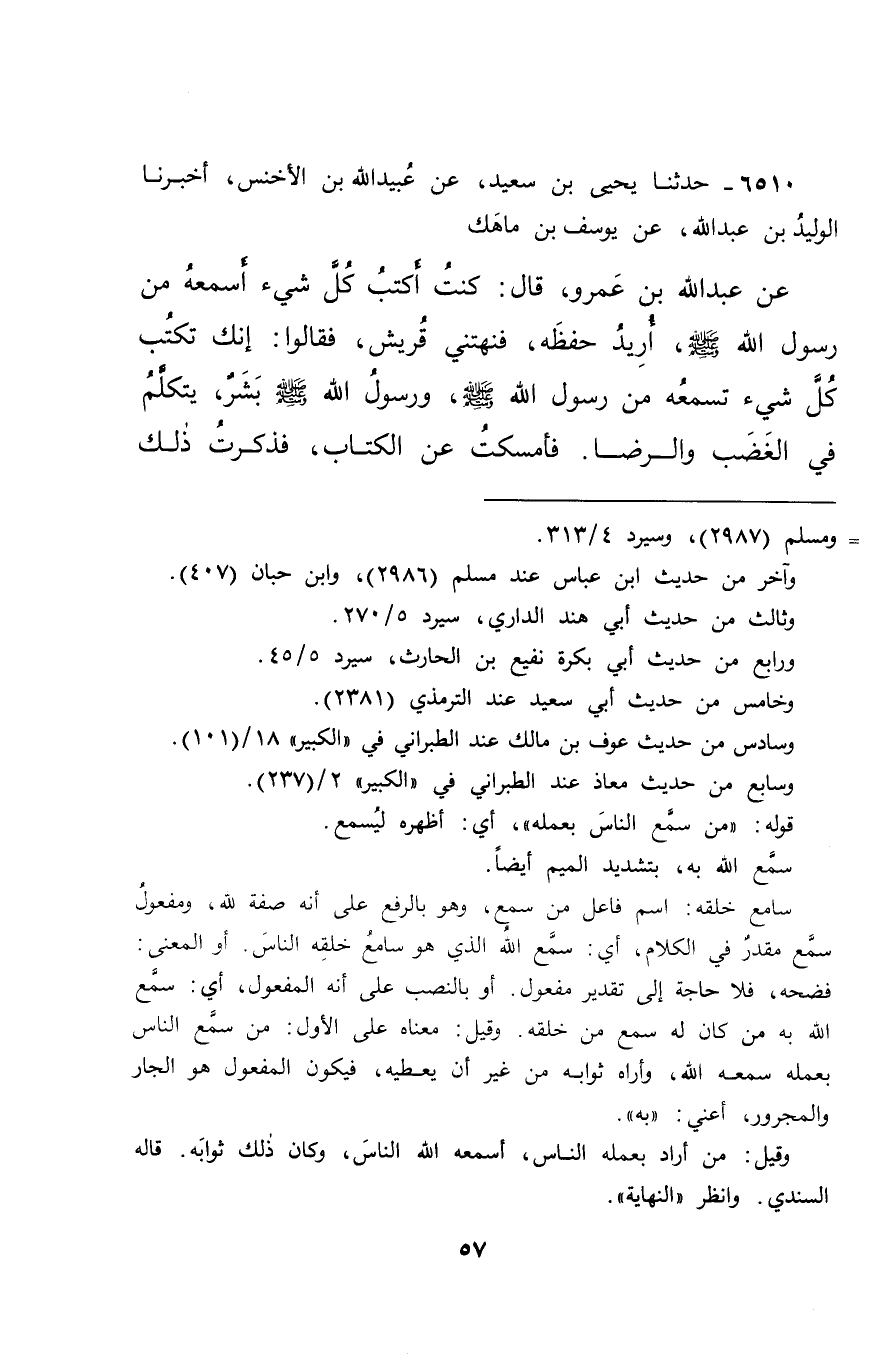 ٦٥١٠ـ حدثنـا يحيى بن سعيد، عن عُبيدالله بن الأخنس، أخبـرنـا
الوليدُ بن عبدالله، عن يوسف بن ماهَك
عن عبدالله بن عَمرو، قال: كنتُ أَكتبُ كُلَّ شيء أَسمعهُ من
رسول الله ﷺ، أُرِيدُ حفظَه، فنهتني قُريش، فقالوا: إنك تكتُب
كُلَّ شيء تسمعُه من رسول الله ﷺ، ورسولُ الله ﷺ بَشَرٌ، يتكلَّمُ
في الغَضَب والـرضـا. فأمسكتُ عن الكتـاب، فذكـرتُ ذٰلـك
= ومسلم (٢٩٨٧)، وسيرد ٣١٣/٤.
وآخر من حديث ابن عباس عند مسلم (٢٩٨٦)، وابن حبان (٤٠٧).
وثالث من حديث أبي هند الداري، سيرد ٢٧٠/٥.
ورابع من حديث أبي بكرة نفيع بن الحارث، سيرد ٤٥/٥.
وخامس من حديث أبي سعيد عند الترمذي (٢٣٨١).
وسادس من حديث عوف بن مالك عند الطبراني في «الكبير» ١٨/(١٠١).
وسابع من حديث معاذ عند الطبراني في «الكبير» ٢/(٢٣٧).
قوله: «من سمَّع الناسَ بعمله»، أي: أظهره ليُسمع.
سمَّع الله به، بتشديد الميم أيضاً.
سامع خلقه: اسم فاعل من سمع، وهو بالرفع على أنه صفة لله، ومفعولُ
سمَّع مقدرٌ في الكلام، أي: سمَّع اللهُ الذي هو سامعُ خلقِه الناسَ. أو المعنى:
فضحه، فلا حاجة إلى تقدير مفعول. أو بالنصب على أنه المفعول، أي: سمَّع
الله به من كان له سمع من خلقه. وقيل: معناه على الأول: من سمَّع الناس
بعمله سمعـه الله، وأراه ثوابـه من غير أن يعـطيه، فيكون المفعول هو الجار
والمجرور، أعني: «به».
وقيل: من أراد بعمله النـاس، أسمعه الله الناسَ، وكان ذٰلك ثوابَه. قاله
السندي. وانظر «النهاية».
٥٧